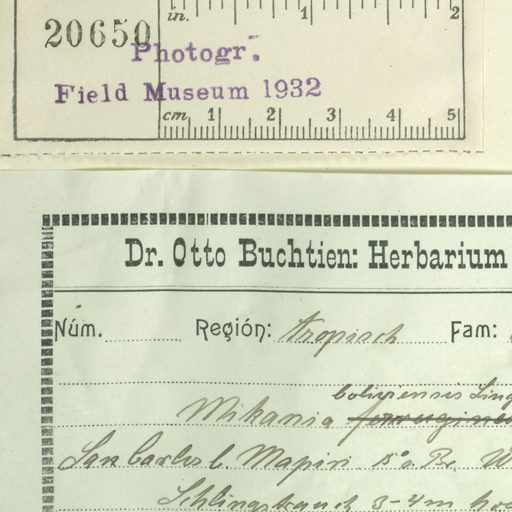 20650
in. 1 2
Photogr.
Field Museum 1932
cm 1 2 3 4 5
Dr. Otto Buchtien: Herbarium
Núm. Región: tropisch Fam:
boliviensis Ling
Mikania ferruginea
San Carlos b. Mapiri. 15° s. Br.
Schlingstrauch 3-4 m